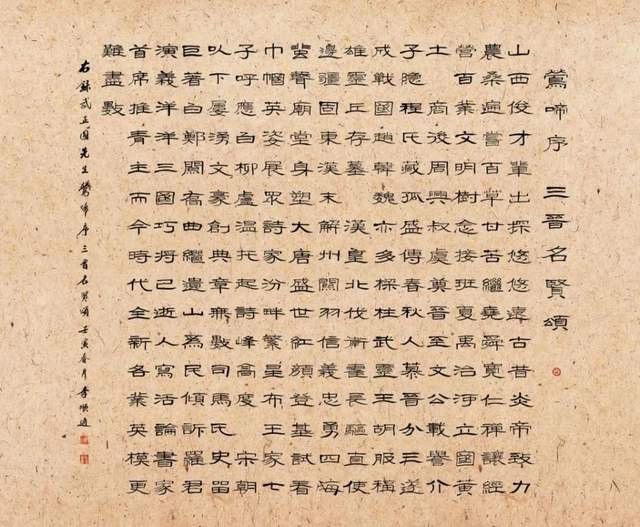 鶯啼序 三晉名賢頌
山西俊才輩出探悠悠遠古昔炎帝致力
農桑遍嘗百草甘苦繼堯舜寬仁禪讓經
營百業文明樹念接班夏禹治河立國黃
土 商後周興叔虞奠晉至文公載譽介
子隱程氏藏孤盛傳春秋人慕晉分三遂
成戰國趙韓魏亦多樑柱武靈王胡服稱
雄靈丘存墓 漢皇北伐衛霍長驅直使
邊疆固東漢末 解州關羽信義忠勇四海
蜚聲廟堂身塑大唐盛世紅顏登基試看
巾幗英姿展眾詩家汾畔繁星布王家七
子呼應白柳盧溫托起詩峰高度 宋朝
以下屢湧文豪創典章無數司馬氏史留
巨著白鄭關高曲繼遺山爲民傾訴羅君
演義洋洋三國巧將已逝人寫活論書家
首席推青主而今時代全新各業英模更
難盡數
右錄武正國先生鶯啼序三晉名賢頌壬寅春月李順通